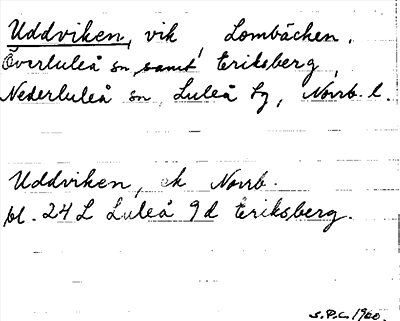 Uddviken, vik, Lombäcken,
Överluleå sn samt Eriksberg,
Nederluleå sn, Luleå tg, Norrb. l.
Uddviken, ek Norrb.
bl. 24 L Luleå 9d Eriksberg.
S.P.C. 1960.